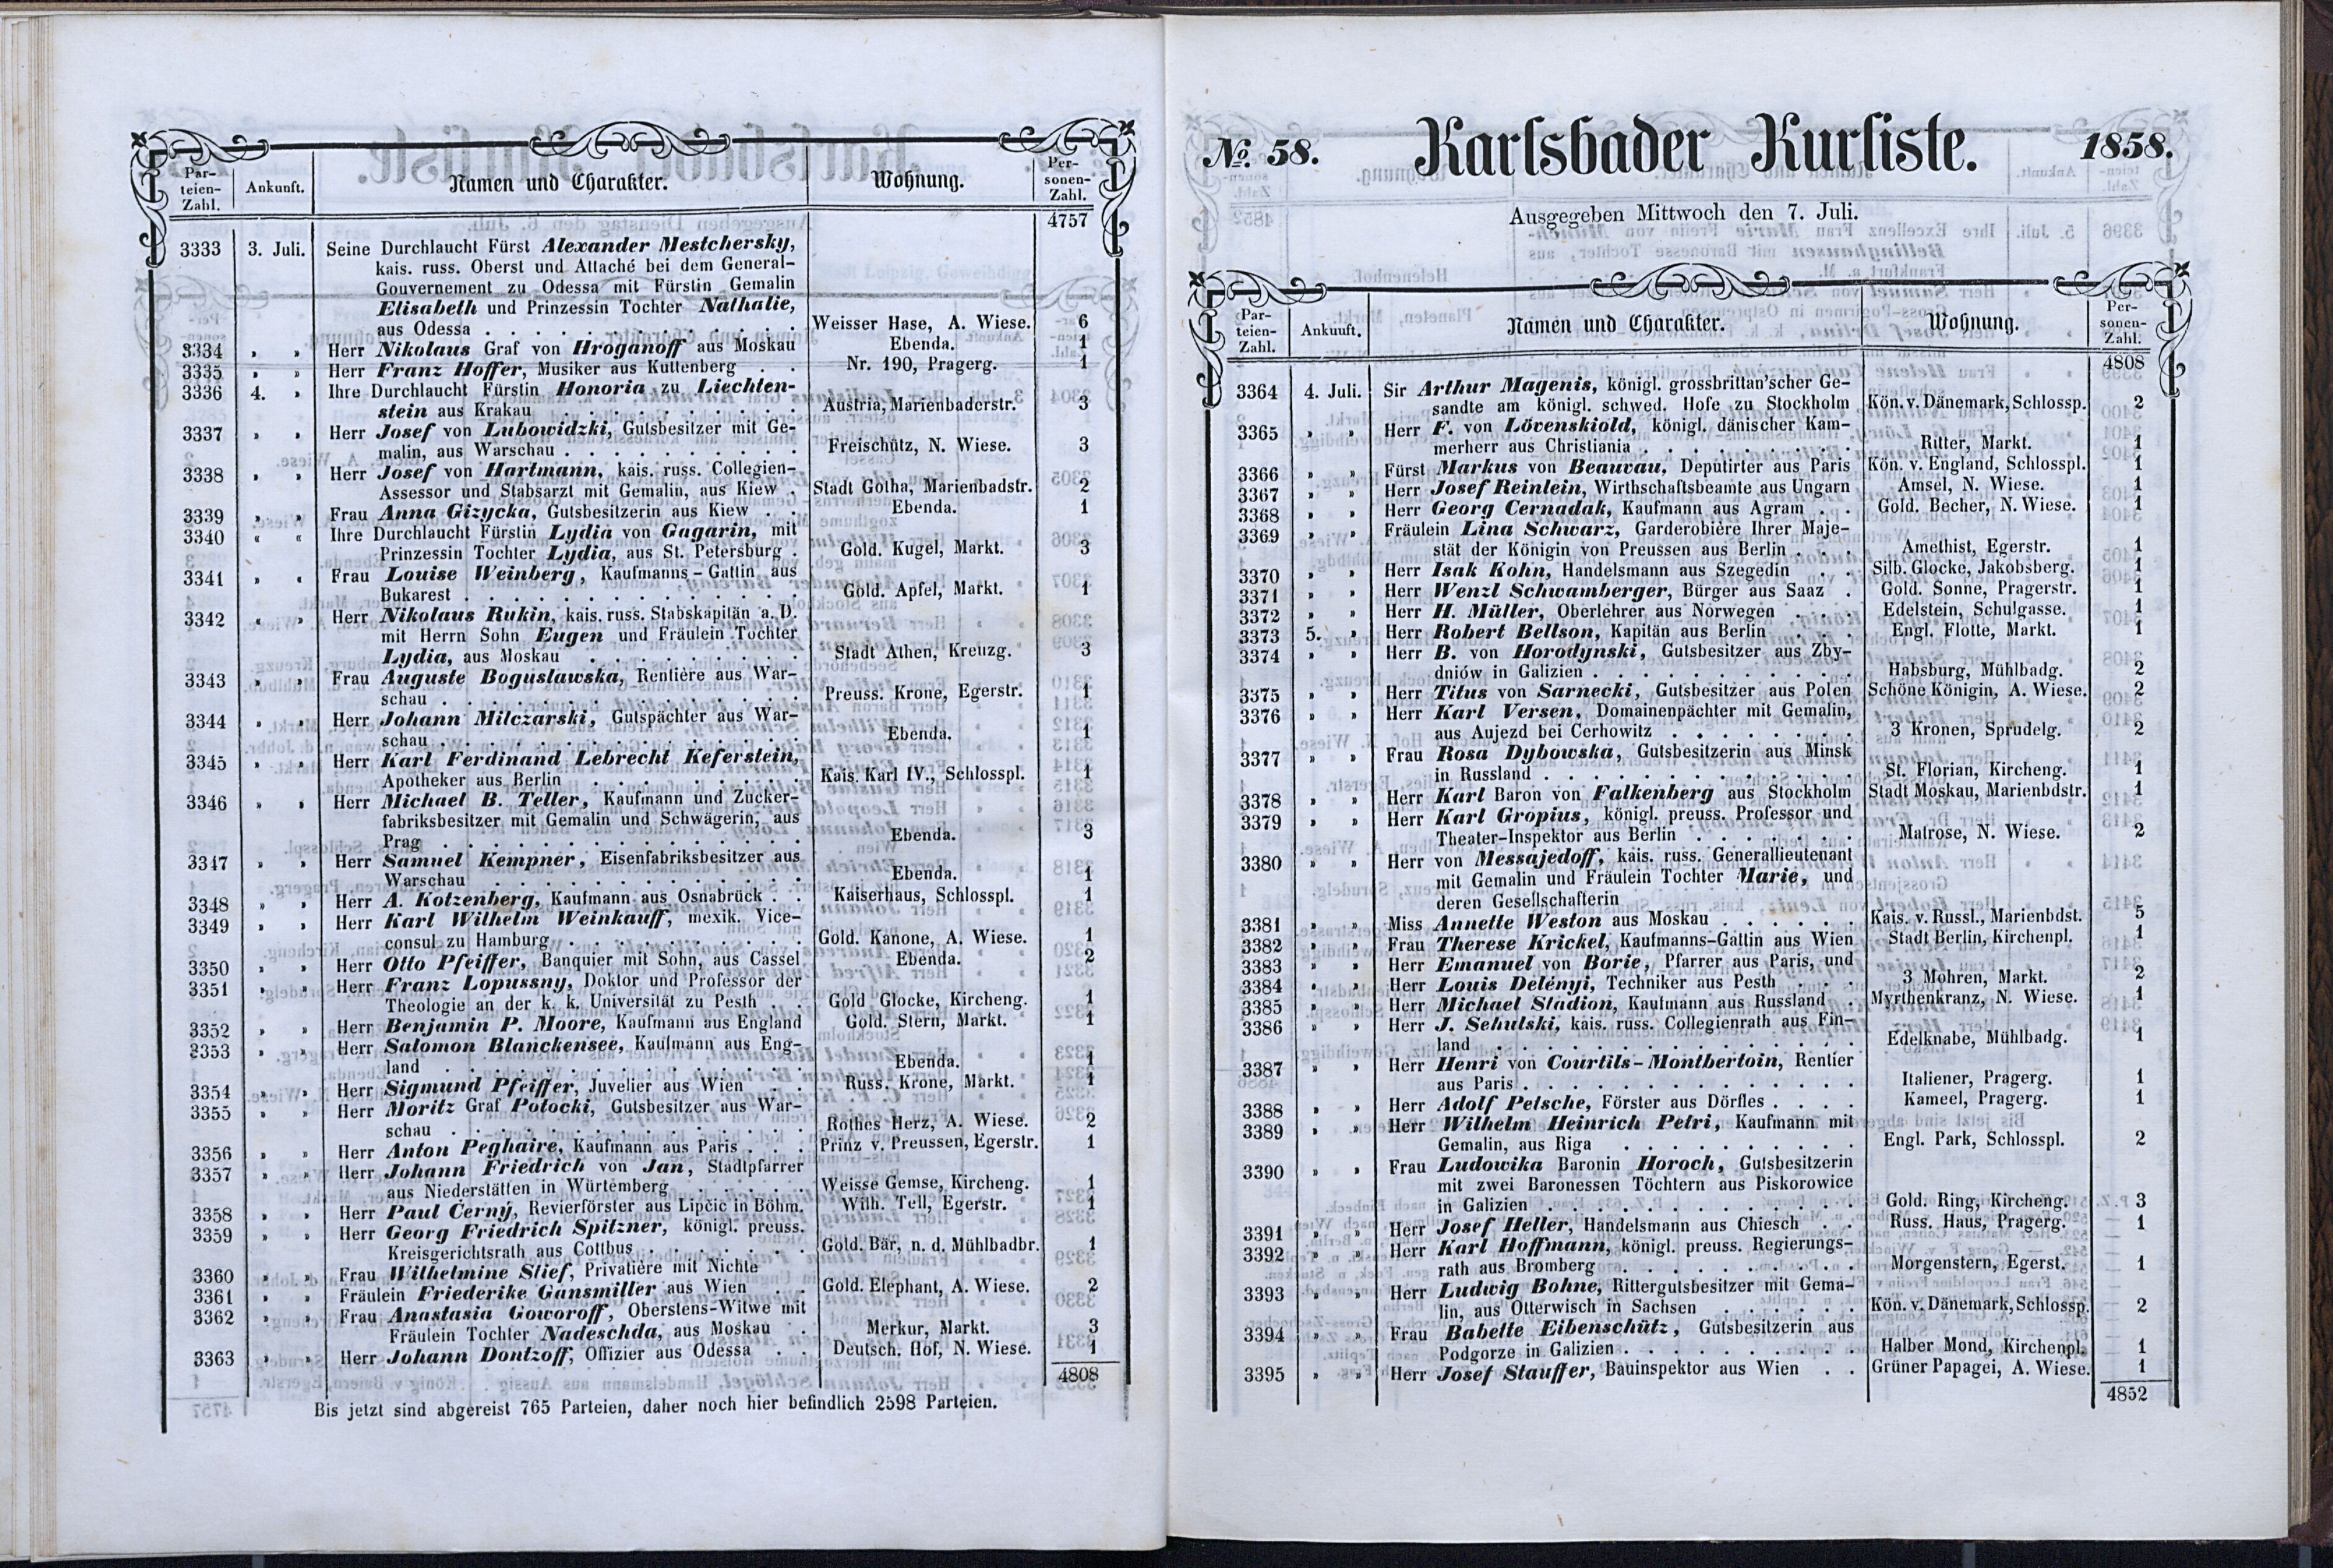 Par-
teien-
Zahl.
Ankunft.
Namen und Charakter.
Wohnung.
Per-
sonen-
Zahl.
4757
3333 3. Juli. Seine Durchlaucht Fürst Alexander Mestchersky,
kais. russ. Oberst und Attaché bei dem General-
Gouvernement zu Odessa mit Fürstin Gemalin
Elisabeth und Prinzessin Tochter Nathalie,
aus Odessa . . . Weisser Hase, A. Wiese. 6
3334 » » Herr Nikolaus Graf von Hroganoff aus Moskau Ebenda. 1
3335 » » Herr Franz Hoffer, Musiker aus Kuttenberg . . Nr. 190, Pragerg. 1
3336 4. » Ihre Durchlaucht Fürstin Honoria zu Liechten-
stein aus Krakau . . . Austria, Marienbaderstr. 3
3337 » » Herr Josef von Lubowidzki, Gutsbesitzer mit Ge-
malin, aus Warschau . . . Freischütz, N. Wiese. 3
3338 » » Herr Josef von Hartmann, kais. russ. Collegien-
Assessor und Stabsarzt mit Gemalin, aus Kiew . Stadt Gotha, Marienbadstr. 2
3339 » » Frau Anna Gizycka, Gutsbesitzerin aus Kiew . . Ebenda. 1
3340 « « Ihre Durchlaucht Fürstin Lydia von Gagarin, mit
Prinzessin Tochter Lydia, aus St. Petersburg . Gold. Kugel, Markt. 3
3341 » « Frau Louise Weinberg, Kaufmanns-Gattin aus
Bukarest . . . Gold. Apfel, Markt. 1
3342 « » Herr Nikolaus Rukin, kais. russ. Stabskapitän a. D.
mit Herrn Sohn Eugen und Fräulein Tochter
Lydia, aus Moskau . . . Stadt Athen, Kreuzg. 3
3343 » » Frau Auguste Boguslawska, Rentière aus War-
schau . . . Preuss. Krone, Egerstr. 1
3344 » » Herr Johann Milczarski, Gutspächter aus War-
schau . . . Ebenda. 1
3345 » » Herr Karl Ferdinand Lebrecht Keferstein,
Apotheker aus Berlin . . . Kais. Karl IV., Schlosspl. 1
3346 » » Herr Michael B. Teller, Kaufmann und Zucker-
fabriksbesitzer mit Gemalin und Schwägerin, aus
Prag . . . Ebenda. 3
3347 » » Herr Samuel Kempner, Eisenfabriksbesitzer aus
Warschau . . . Ebenda. 1
3348 » » Herr A. Kotzenberg, Kaufmann aus Osnabrück . . Kaiserhaus, Schlosspl. 1
3349 » » Herr Karl Wilhelm Weinkauff, mexik. Vice-
consul zu Hamburg . . . Gold. Kanone, A. Wiese. 1
3350 » » Herr Otto Pfeiffer, Banquier mit Sohn, aus Cassel Ebenda. 2
3351 » » Herr Franz Lopussny, Doktor und Professor der
Theologie an der k. k. Universität zu Pesth Gold Glocke, Kircheng. 1
3352 » » Herr Benjamin P. Moore, Kaufmann aus England Gold. Stern, Markt. 1
3353 » » Herr Salomon Blanckensee, Kaufmann aus Eng-
land . . . Ebenda. 1
3354 » » Herr Sigmund Pfeiffer, Juvelier aus Wien Russ. Krone, Markt. 1
3355 » » Herr Moritz Graf Potocki, Gutsbesitzer aus War-
schau . . . Rothes Herz, A. Wiese. 2
3356 » » Herr Anton Peghaire, Kaufmann aus Paris . . . Prinz v. Preussen, Egerstr. 1
3357 » » Herr Johann Friedrich von Jan, Stadtpfarrer
aus Niederstätten in Würtemberg . . . Weisse Gemse, Kircheng. 1
3358 » » Herr Paul Černý, Revierförster aus Lipčic in Böhm. Wilh. Tell, Egerstr. 1
3359 » » Herr Georg Friedrich Spitzner, königl. preuss.
Kreisgerichtsrath aus Cottbus . . . Gold. Bär, n. d. Mühlbadbr. 1
3360 » » Frau Wilhelmine Stief, Privatière mit Nichte
3361 » » Fräulein Friederike Gansmiller aus Wien . . Gold. Elephant, A. Wiese. 2
3362 » » Frau Anastasia Goworoff, Oberstens-Witwe mit
Fräulein Tochter Nadeschda, aus Moskau . Merkur, Markt. 3
3363 » » Herr Johann Dontzoff, Offizier aus Odessa . . Deutsch. Hof, N. Wiese. 1
4808
Bis jetzt sind abgereist 765 Parteien, daher noch hier befindlich 2598 Parteien.
No. 58. Karlsbader Kurliste. 1858.
Ausgegeben Mittwoch den 7. Juli.
Par-
teien-
Zahl.
Ankunft.
Namen und Charakter.
Wohnung.
Per-
sonen-
Zahl.
4808
3364 4. Juli. Sir Arthur Magenis, königl. grossbrittan'scher Ge-
sandte am königl. schwed. Hofe zu Stockholm Kön. v. Dänemark, Schlossp. 2
3365 » » Herr F. von Lövenskiold, königl. dänischer Kam-
merherr aus Christiania . . . Ritter, Markt. 1
3366 » » Fürst Markus von Beauvau, Deputirter aus Paris Kön. v. England, Schlosspl. 1
3367 » » Herr Josef Reinlein, Wirthschaftsbeamte aus Ungarn Amsel, N. Wiese. 1
3368 » » Herr Georg Cernadak, Kaufmann aus Agram . . Gold. Becher, N. Wiese. 1
3369 » » Fräulein Lina Schwarz, Garderobière Ihrer Maje-
stät der Königin von Preussen aus Berlin . . . Amethist, Egerstr. 1
3370 » » Herr Isak Kohn, Handelsmann aus Szegedin . . Silb. Glocke, Jakobsberg. 1
3371 » » Herr Wenzl Schwamberger, Bürger aus Saaz . Gold. Sonne, Pragerstr. 1
3372 » » Herr H. Müller, Oberlehrer aus Norwegen . . . Edelstein, Schulgasse. 1
3373 5. » Herr Robert Bellson, Kapitän aus Berlin . . . Engl. Flotte, Markt. 1
3374 » » Herr B. von Horodynski, Gutsbesitzer aus Zby-
dniów in Galizien . . . Habsburg, Mühlbadg. 2
3375 » » Herr Titus von Sarnecki, Gutsbesitzer aus Polen Schöne Königin, A. Wiese. 2
3376 » » Herr Karl Versen, Domainenpächter mit Gemalin,
aus Aujezd bei Cerhowitz . . . 3 Kronen, Sprudelg. 2
3377 » » Frau Rosa Dybowska, Gutsbesitzerin aus Minsk
in Russland . . . St. Florian, Kircheng. 1
3378 » » Herr Karl Baron von Falkenberg aus Stockholm Stadt Moskau, Marienbdstr. 1
3379 » » Herr Karl Gropius, königl. preuss. Professor und
Theater-Inspektor aus Berlin . . . Matrose, N. Wiese. 2
3380 » » Herr von Messajedoff, kais. russ. Generallieutenant
mit Gemalin und Fräulein Tochter Marie, und
deren Gesellschafterin
3381 » » Miss Annette Weston aus Moskau . . . Kais. v. Russl., Marienbdst. 5
3382 » » Frau Therese Krickel, Kaufmanns-Gattin aus Wien Stadt Berlin, Kirchenpl. 1
3383 » » Herr Emanuel von Borie, Pfarrer aus Paris, und
3384 » » Herr Louis Delényi, Techniker aus Pesth . . . 3 Mohren, Markt. 2
3385 » » Herr Michael Stadion, Kaufmann aus Russland . Myrthenkranz, N. Wiese. 1
3386 » » Herr J. Sehulski, kais. russ. Collegienrath aus Fin-
land . . . Edelknabe, Mühlbadg. 1
3387 » » Herr Henri von Courtils-Montbertoin, Rentier
aus Paris . . . Italiener, Pragerg. 1
3388 » » Herr Adolf Petsche, Förster aus Dörfles . . . . Kameel, Pragerg. 1
3389 » » Herr Wilhelm Heinrich Petri, Kaufmann mit
Gemalin, aus Riga . . . Engl. Park, Schlosspl. 2
3390 » » Frau Ludowika Baronin Horoch, Gutsbesitzerin
mit zwei Baronessen Töchtern aus Piskorowice
in Galizien . . . Gold. Ring, Kircheng. 3
3391 » » Herr Josef Heller, Handelsmann aus Chiesch . . Russ. Haus, Pragerg. 1
3392 » » Herr Karl Hoffmann, königl. preuss. Regierungs-
rath aus Bromberg . . . Morgenstern, Egerst. 1
3393 » » Herr Ludwig Bohne, Rittergutsbesitzer mit Gema-
lin, aus Otterwisch in Sachsen . . . Kön. v. Dänemark, Schlossp. 2
3394 » » Frau Babette Eibenschütz, Gutsbesitzerin aus
Podgorze in Galizien . . . Halber Mond, Kirchenpl. 1
3395 » » Herr Josef Stauffer, Bauinspektor aus Wien . . Grüner Papagei, A. Wiese. 1
4852